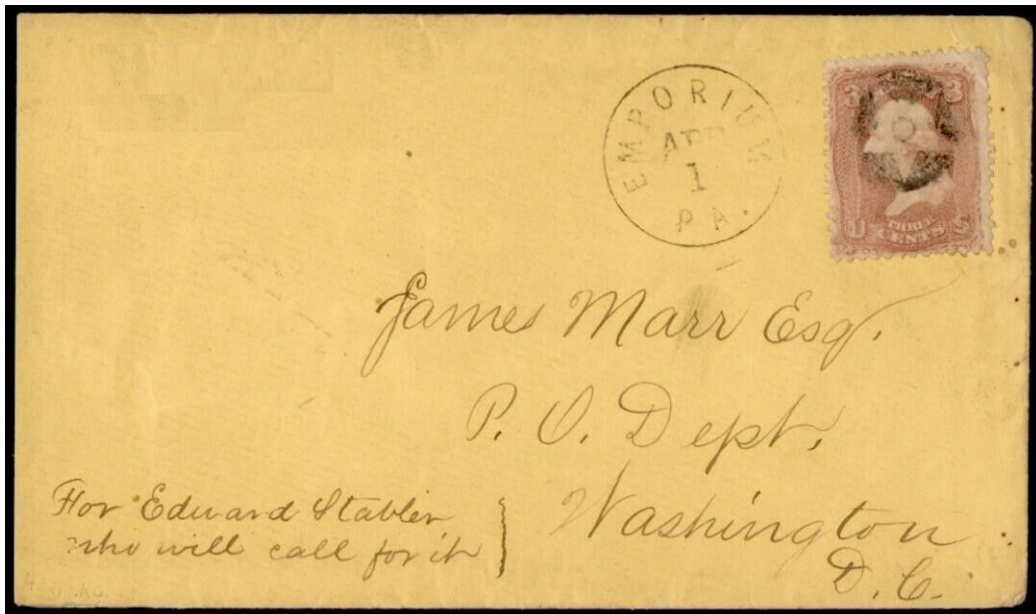 EMPORIUM
APR
1
PA.
3
U THREE S
CENTS
James Marr Esq.
P. O. Dept.
Washington
D. C.
For Edward Stabler
who will call for it